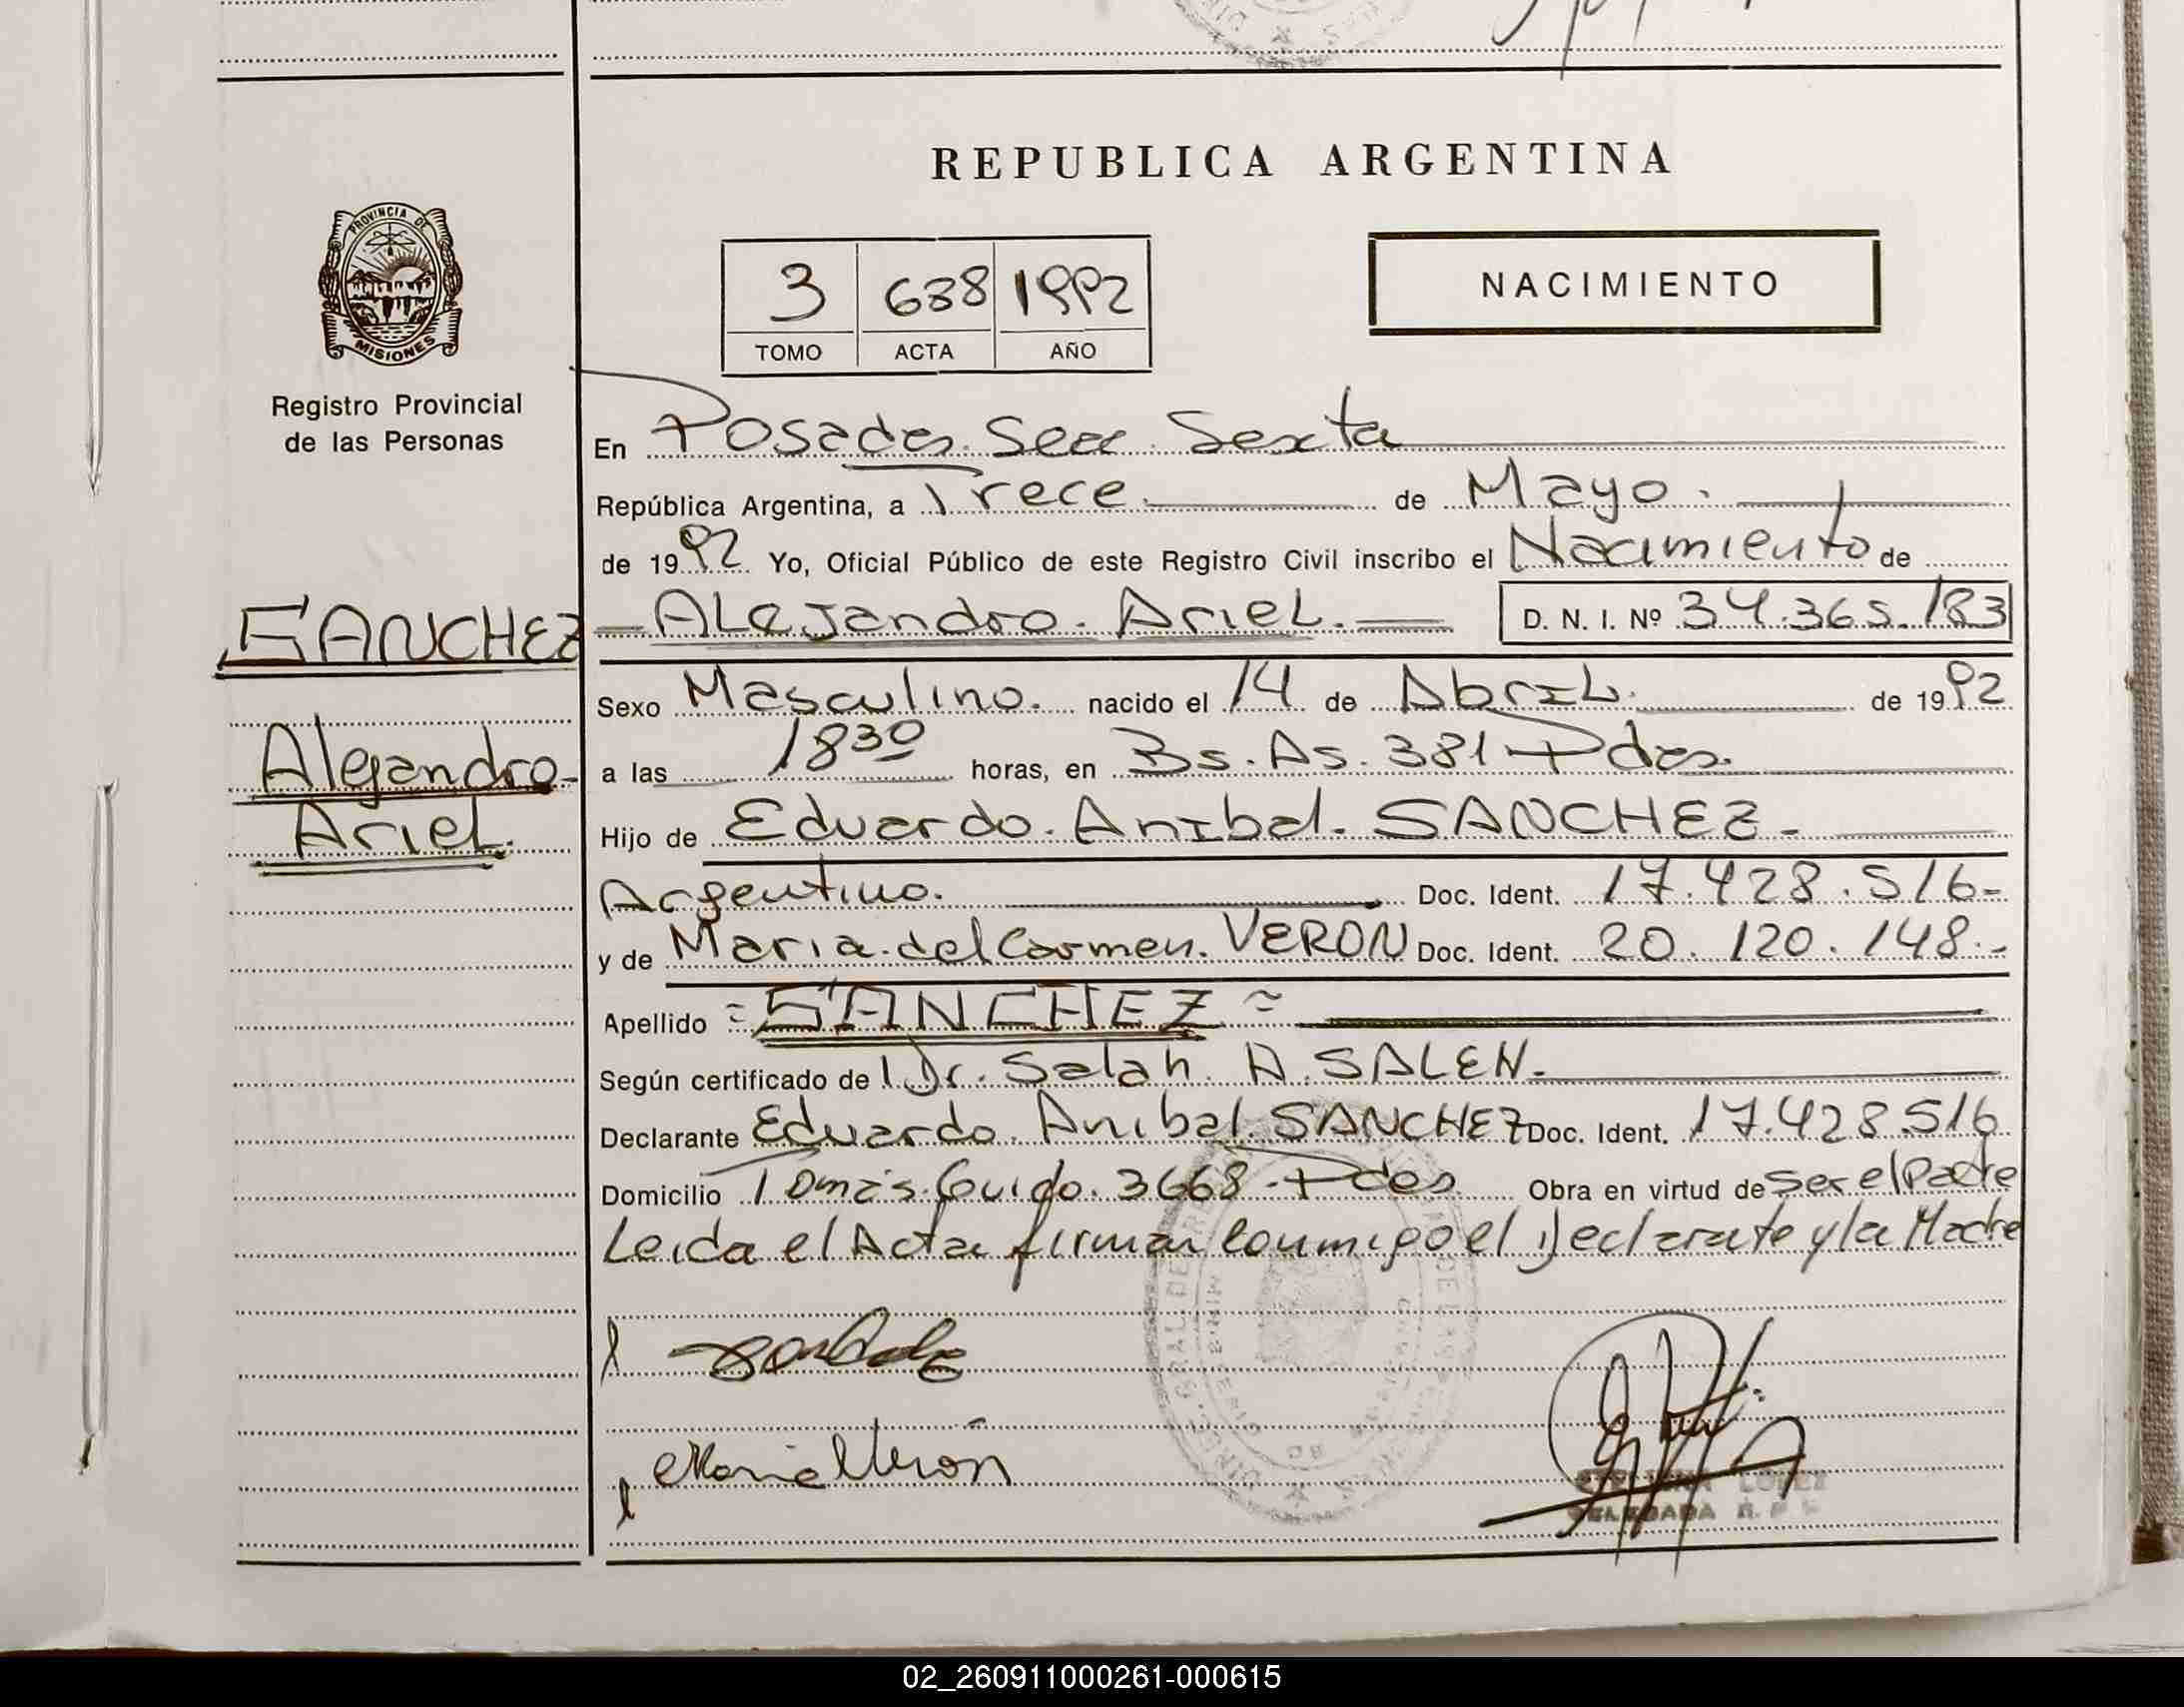 REPUBLICA ARGENTINA
PROVINCIA DE
MISIONES
Registro Provincial
de las Personas
3 638 1992
TOMO ACTA AÑO
NACIMIENTO
En Posadas. Secc. Sexta
República Argentina, a Trece. de Mayo.
de 1992 Yo, Oficial Público de este Registro Civil inscribo el Nacimiento de
SANCHEZ
Alejandro
Ariel.
ALejandro. ArieL. D. N. I. Nº 34.365.183
Sexo Masculino. nacido el 14 de AbriL. de 1992
a las 18 30 horas, en Bs. As. 381 Pdas.
Hijo de Eduardo. Anibal. SANCHEZ.-
Argentino. Doc. Ident. 17.428.516-
y de Maria del Carmen. VERON Doc. Ident. 20.120.148.-
Apellido = SANCHEZ =
Según certificado de Dr. Salah A. SALEN.-
Declarante Eduardo. Anibal. SANCHEZ Doc. Ident. 17.428.516
Domicilio Tomás Guido. 3668 - Pdas. Obra en virtud de ser el Padre
Leida el Acta firman conmigo el Declarante y la Madre
Maria Verón
LOPEZ
DELEGADA R. P.
02_260911000261-000615